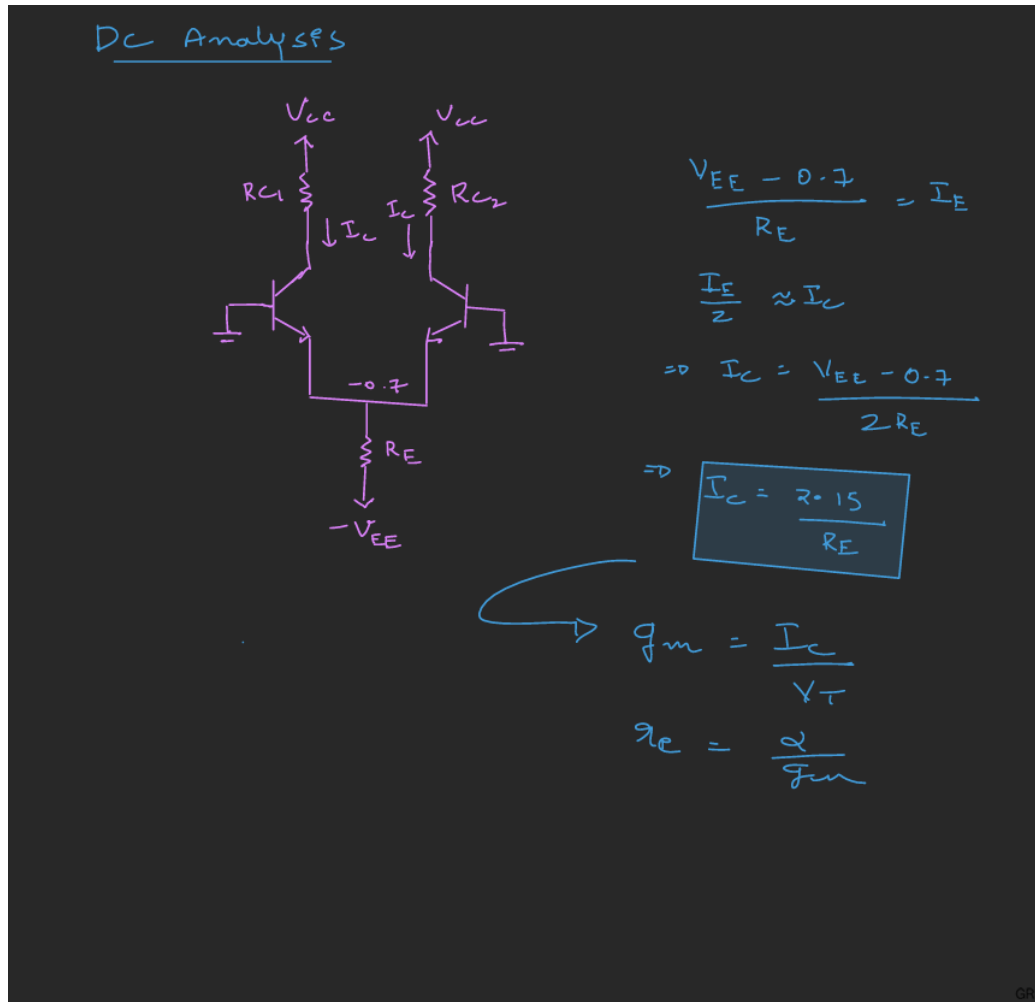 Dc Analysis
Vcc Vcc
RC1 RC2
Ic Ic
-0.7
RE
-VEE
VEE - 0.7 / RE = IE
IE / 2 ≈ Ic
⇒ IC = VEE - 0.7 / 2RE
⇒ IC = 2.15 / RE
gm = Ic / VT
re = α / gm